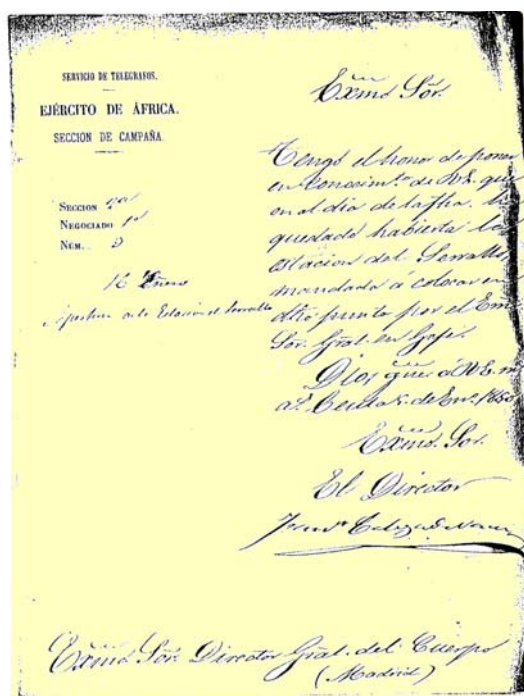 SERVICIO DE TELEGRAFOS.
EJÉRCITO DE ÁFRICA.
SECCION DE CAMPAÑA.
SECCION
NEGOCIADO 1º
NÚM. 3
16 Enero
Apertura de la Estacion del Serrallo
Exmo Sor.
Tengo el honor de poner
en conocimto. de V.E. que
en el dia de la fha. ha
quedado habierta la
estacion del Serrallo,
mandada á colocar en
dho punto por el Emo
Sor. Gral. en Gefe.
Dios gue. á V.E. m.
as. Ceuta de Eno. 1860
Exmo. Sor.
El Director
Exmo Sor. Director Gral. del Cuerpo
(Madrid)